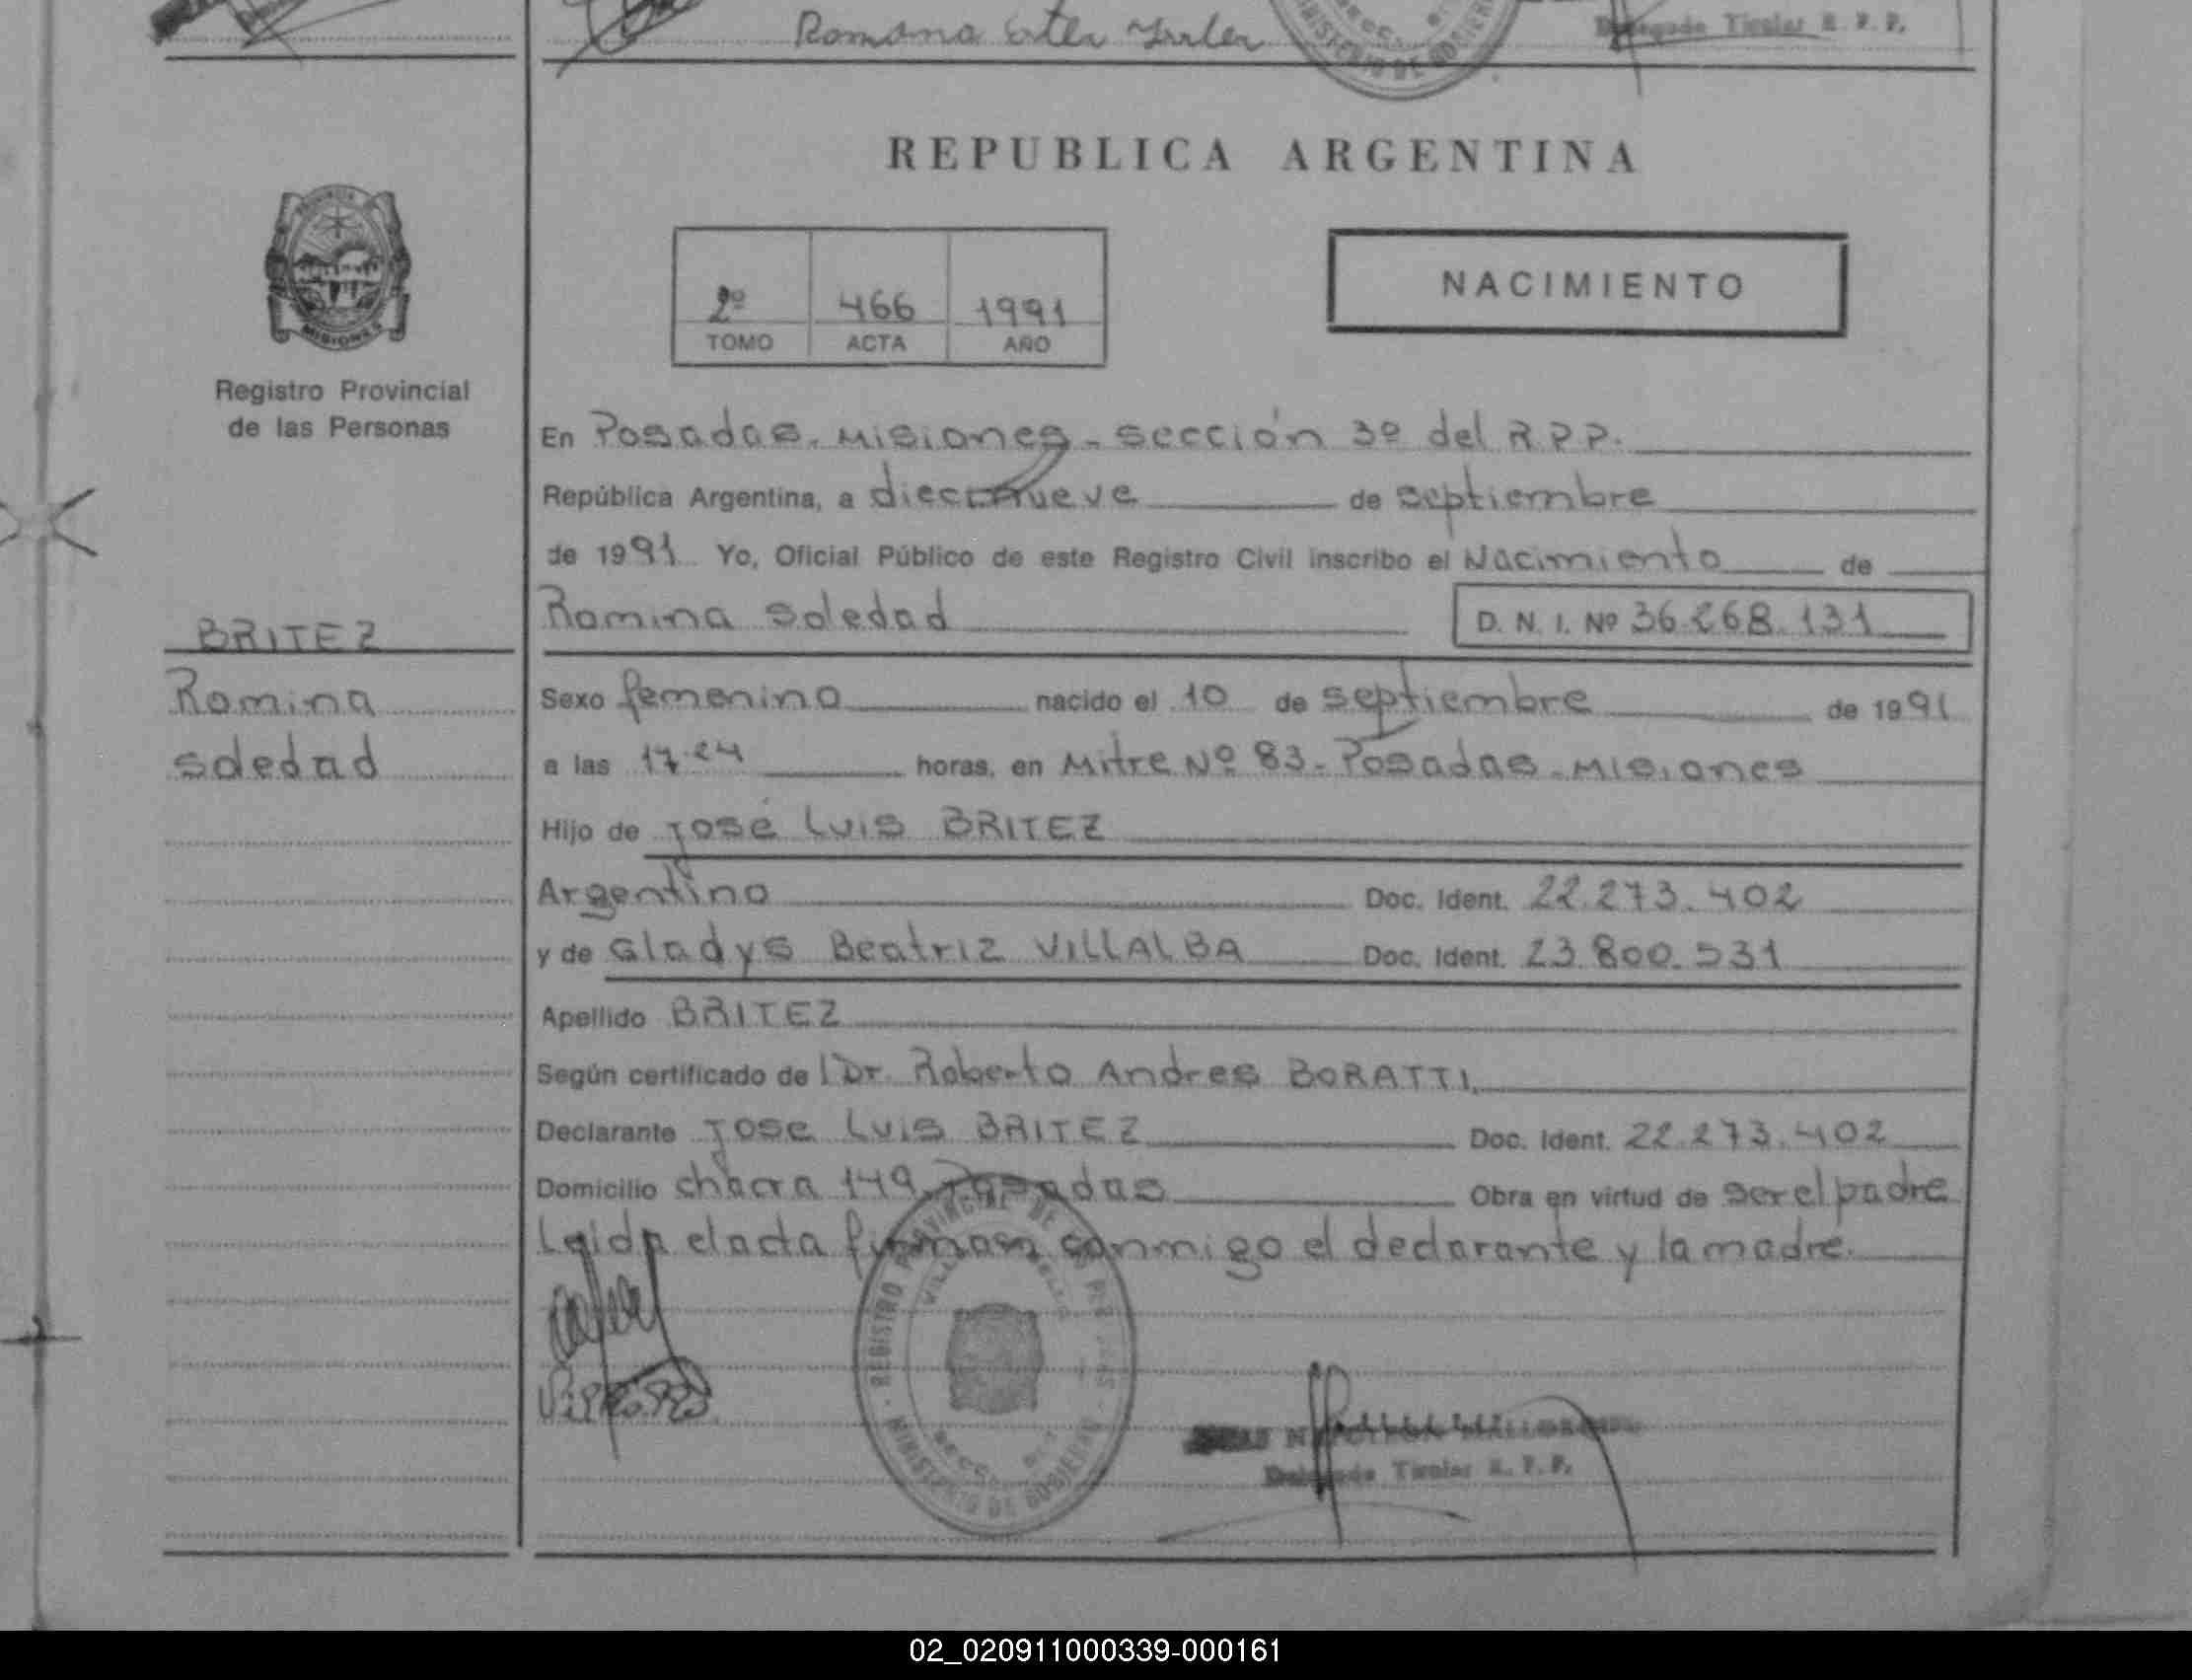 Romana Ester
Delegado Titular R. P. P.
MINISTERIO DE GOBIERNO
REPUBLICA ARGENTINA
MISIONES
Registro Provincial
de las Personas
2º 466 1991
TOMO ACTA AÑO
NACIMIENTO
En Posadas. Misiones - sección 3º del R.P.P.
República Argentina, a diecinueve de septiembre
de 1991 Yo, Oficial Público de este Registro Civil inscribo el Nacimiento de
BRITEZ
Romina Soledad D. N. I. Nº 36.268.131
Romina
Soledad
Sexo femenino nacido el 10 de septiembre de 1991
a las 17:24 horas, en Mitre Nº 83 - Posadas - Misiones
Hijo de José Luis BRITEZ
Argentino Doc. Ident. 22.273.402
y de Gladys Beatriz VILLALBA Doc. Ident. 23.800.531
Apellido BRITEZ
Según certificado de l Dr. Roberto Andres BORATTI
Declarante Jose Luis BRITEZ Doc. Ident. 22.273.402
Domicilio chacra 149 Posadas Obra en virtud de ser el padre
Leida el acta firman conmigo el declarante y la madre.
REGISTRO PROVINCIAL DE LAS PERSONAS
MINISTERIO DE GOBIERNO
Delegado Titular R. P. P.
02_020911000339-000161